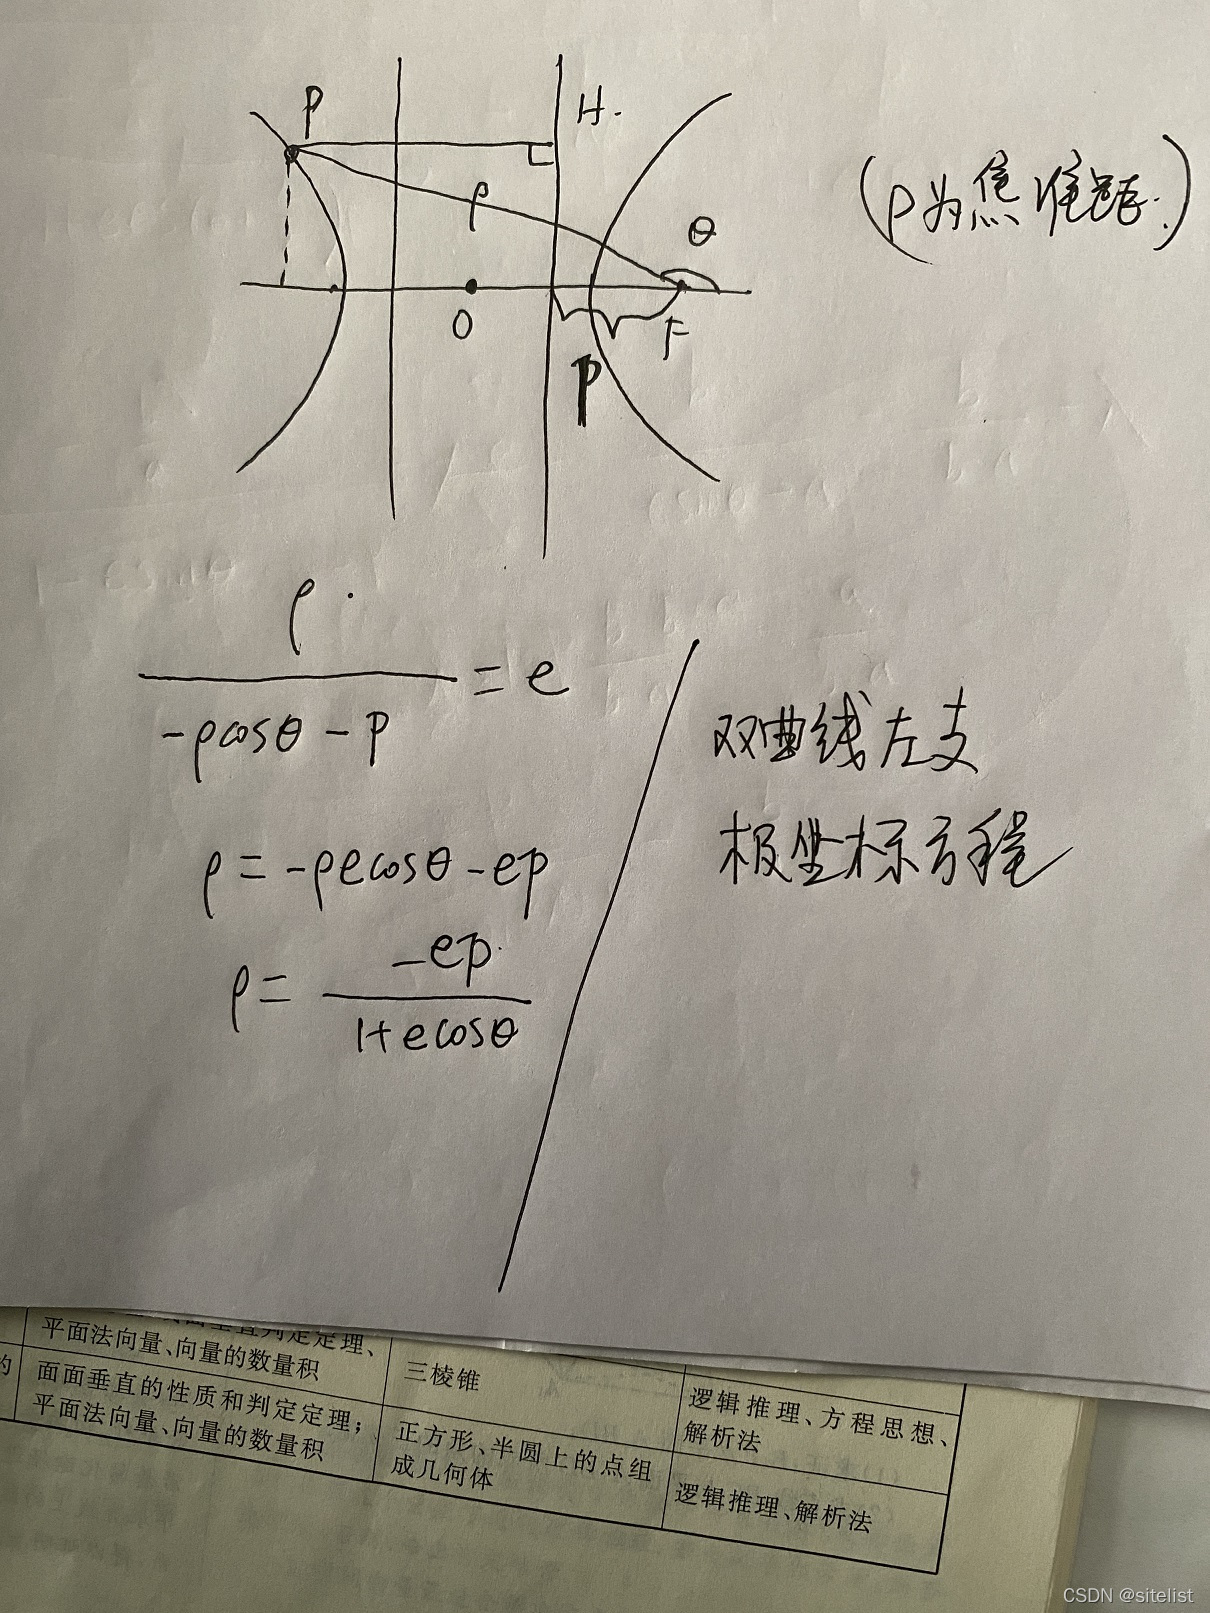 P
H.
(p为焦准距.)
ρ
θ
O
F
P
ρ
──────── = e
-ρcosθ - P
双曲线左支
极坐标方程
ρ = -ρecosθ - ep
ρ = -ep / 1+ecosθ
平面法向量、向量的数量积
的
面面垂直的性质和判定定理；
平面法向量、向量的数量积
三棱锥
正方形、半圆上的点组
成几何体
逻辑推理、方程思想、
解析法
逻辑推理、解析法
CSDN @sitelist